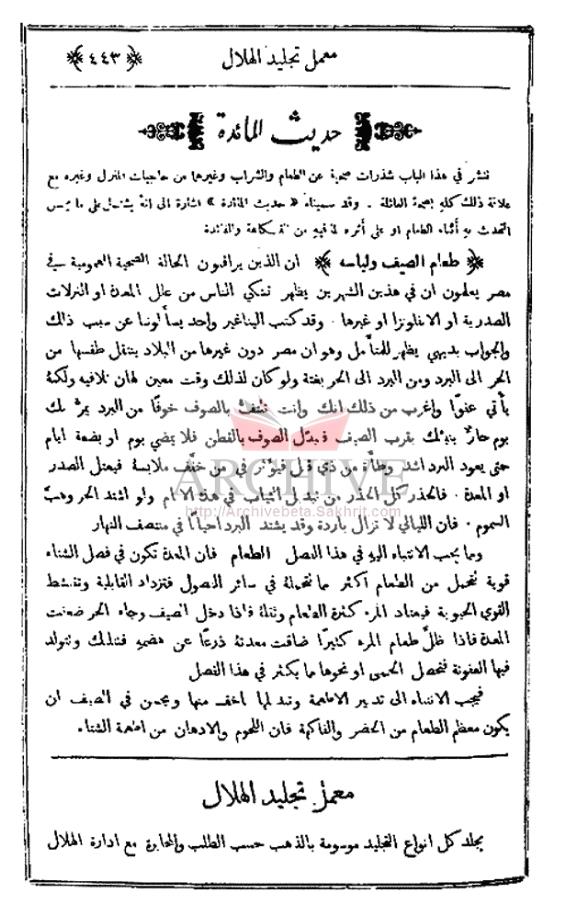 معمل تجليد الهلال ﴿٤٤٣﴾
حديث المائدة
ننشر في هذا الباب شذرات صحية عن الطعام والشراب وغيرها من حاجيات المنزل وغيره مع
علاقة ذلك كله بصحة العائلة . وقد سميناه « حديث المائدة » اشارة الى انهُ يشتمل على ما يحسن
التحدث به أثناء الطعام او على أثره لما فيه من الفكاهة والفائدة
﴿ طعام الصيف ولباسه ﴾ ان الذين يراقبون الحالة الصحية العمومية في
مصر يعلمون ان في هذين الشهرين يظهر تشكي الناس من علل المعدة او النزلات
الصدرية او الانفلونزا او غيرها . وقد كتب الينا غير واحد يسألوننا عن سبب ذلك
والجواب بديهي يظهر للمتأمل وهو ان مصر دون غيرها من البلاد ينتقل طقسها من
الحر الى البرد ومن البرد الى الحر بغتة ولو كان لذلك وقت معين لهان تلافيه ولكنهُ
يأتي عفوًا واغرب من ذلك انك وانت تلتفُّ بالصوف خوفًا من البرد يمرُّ بك
يوم حارّ ينبئك بقرب الصيف فتبدل الصوف بالقطن فلا يمضي يوم او بضعة ايام
حتى يعود البرد اشد وطأة من ذي قبل فيؤثر في من خفّف ملابسهُ فيعتل الصدر
او المعدة . فالحذر كل الحذر من تبديل الثياب في هذه الايام ولو اشتد الحر وهبَّ
السموم . فان الليالي لا تزال باردة وقد يشتد البرد احيانًا في منتصف النهار
ومما يجب الانتباه اليه في هذا الفصل الطعام فان المعدة تكون في فصل الشتاء
قوية تتحمل من الطعام أكثر مما تتحملهُ في سائر الفصول فتزداد القابلية وتنشط
القوى الحيوية فيعتاد المرء كثرة الطعام وثقلهُ فاذا دخل الصيف وجاء الحر ضعفت
المعدة فاذا ظلَّ طعام المرء كثيرًا ضاقت معدتهُ ذرعًا عن هضمه فتتلبك وتتولد
فيها العفونة فتحصل الحمى او نحوها مما يكثر في هذا الفصل
فيجب الانتباه الى تدبير الاطعمة وتبديلها باخف منها ويحسن في الصيف ان
يكون معظم الطعام من الخضر والفاكهة فان اللحوم والادهان من اطعمة الشتاء .
معمل تجليد الهلال
يجلد كل انواع التجليد موسومة بالذهب حسب الطلب والمخابرة مع ادارة الهلال
ARCHIVE
http://Archivebeta.Sakhrit.com